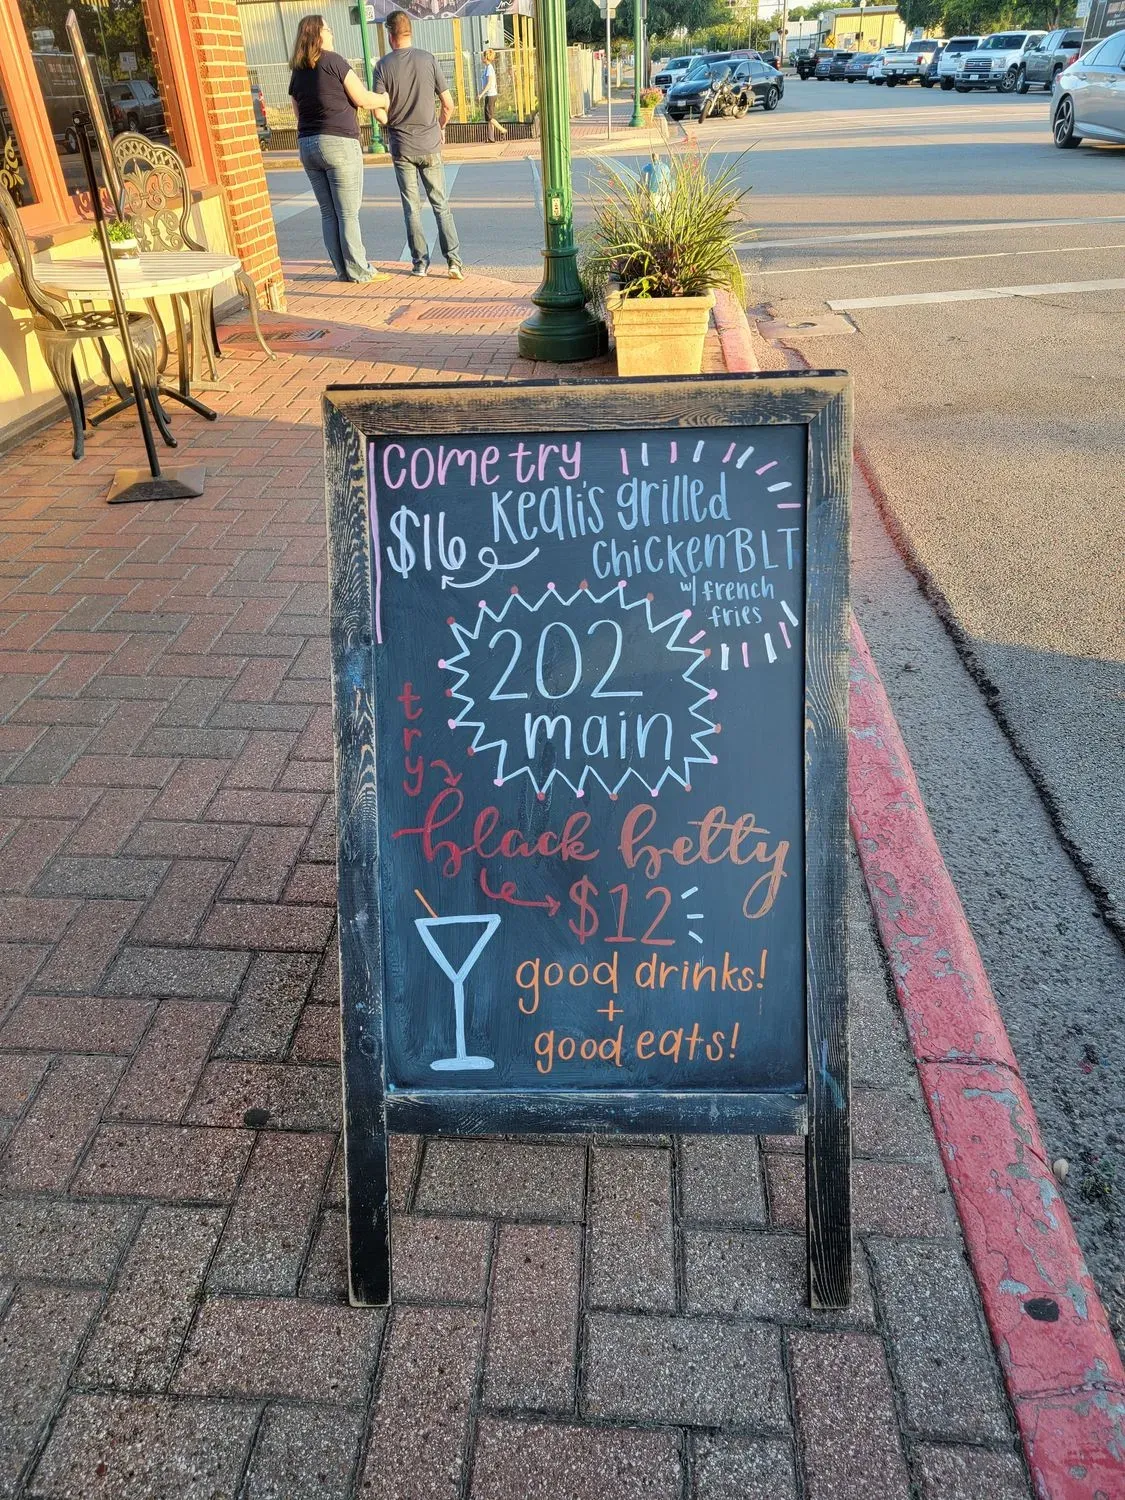 come try
Keali's grilled
$16
chicken BLT
w/ french
fries
202
main
try
black betty
$12
good drinks!
+
good eats!